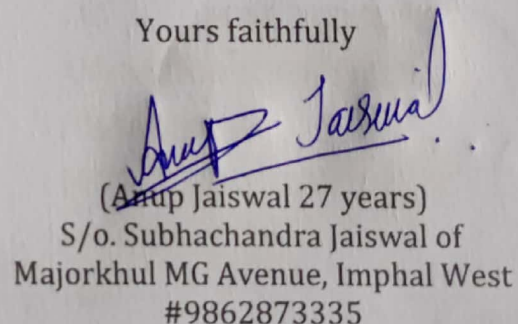 Yours faithfully
Anup Jaiswal
(Anup Jaiswal 27 years)
S/o. Subhachandra Jaiswal of
Majorkhul MG Avenue, Imphal West
#9862873335